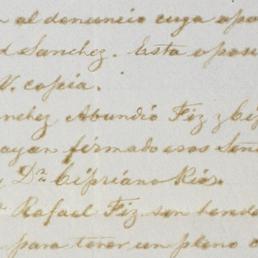 al denuncio cuya opo
Sanchez. Esta oposi
V. copia.
nchez Abundio Fiz y Cip
ayan firmado esos Seño
y Dn. Cipriano Rios.
Rafael Fiz son herede
para tener un pleno